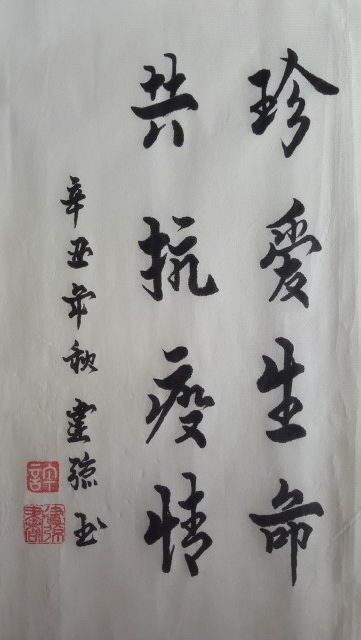 珍爱生命
共抗疫情
辛丑年秋